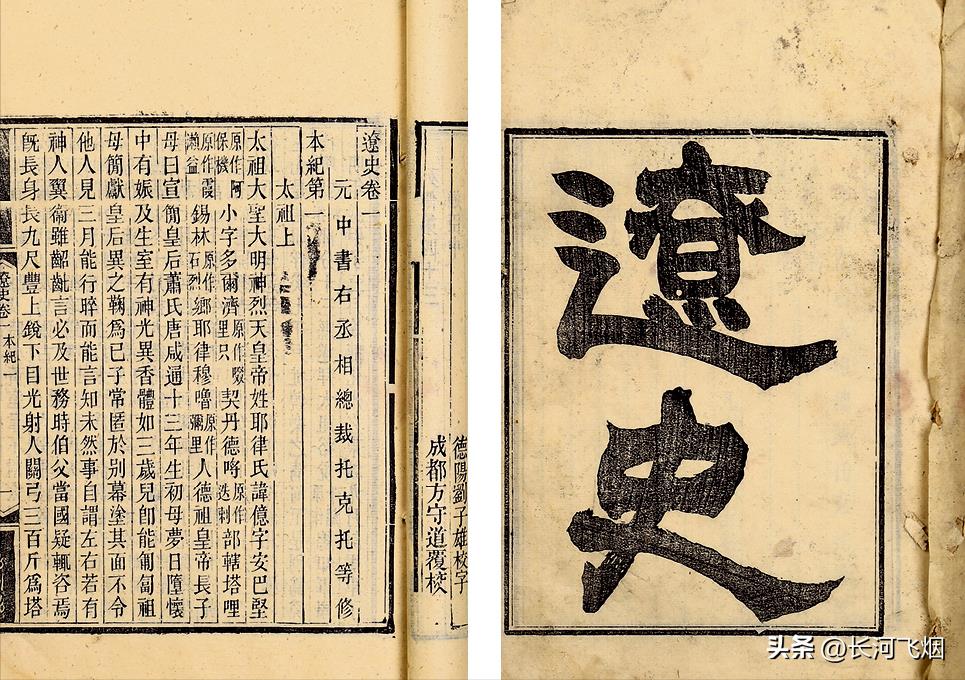 遼史
德陽劉子雄校字
成都方守道覆校
遼史卷一
元中書右丞相總裁托克托等修
本紀第一
太祖上
太祖大聖大明神烈天皇帝姓耶律氏諱億字安巴堅
原作阿保機小字多爾濟原作啜里只契丹德哷原作迭剌部轄塔哩
原作霞瀨益錫林原作石烈鄉耶律穆嚕原作彌里人德祖皇帝長子
母曰宣簡皇后蕭氏唐咸通十三年生初母夢日墮懷
中有娠及生室有神光異香體如三歲兒卽能匍匐祖
母簡獻皇后異之鞠爲己子常匿於別幕塗其面不令
他人見三月能行晬而能言知未然事自謂左右若有
神人翼衞雖齠齔言必及世務時伯父當國疑輒咨焉
旣長身長九尺豐上銳下目光射人關弓三百斤爲塔
遼史卷一 本紀 一
头条 @长河飞烟